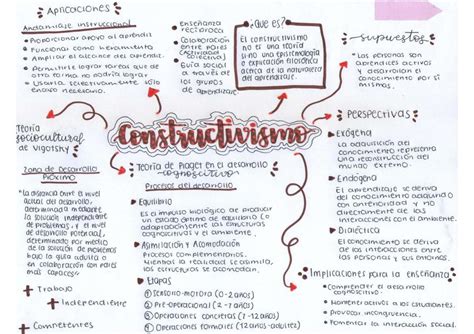 Aplicaciones
Andamiaje instruccional
• Proporcionar apoyo al aprendiz
• Funcionar como herramienta
• Ampliar el alcance del aprendiz.
• Permitirle lograr tareas que de
otra forma no podría lograr.
• Usarlo selectivamente sólo
cuando necesario.
• Enseñanza
recíproca
• Colaboración
entre pares
(Actividades)
• Guía social
a través de
los grupos
de aprendizaje
¿Qué es?
El constructivismo
no es una teoría
sino una epistemología
o explicación filosófica
acerca de la naturaleza
del aprendizaje.
Supuestos
• Las personas son
aprendices activos
y desarrollan el
conocimiento por sí
mismas.
Constructivismo
Teoría
sociocultural
de Vigotsky
Zona de Desarrollo
Próximo
• La distancia entre el nivel
actual del desarrollo,
determinada mediante
la solución independiente
de problemas, y el nivel
de desarrollo potencial,
determinado por medio
de la solución de problemas
bajo la guía adulta o
en colaboración con pares
más capaces.
+ Trabajo
+ Independiente
+ Competentes
Teoría de Piaget en el desarrollo
cognoscitivo
Procesos del desarrollo
• Equilibrio
Es el impulso biológico de producir
un estado óptimo de equilibrio (o
adaptación) entre las estructuras
cognoscitivas y el ambiente.
• Asimilación y Acomodación
Procesos complementarios.
Mientras la realidad se asimila,
las estructuras se acomodan.
• Etapas
① Sensorio-motora (0-2 años)
② Pre-operacional (2-7 años)
③ Operaciones concretas (7-12 años)
④ Operaciones formales (12 años-adulto)
Perspectivas
• Exógena
La adquisición del
conocimiento representa
una reconstrucción del
mundo externo.
• Endógena
El aprendizaje se deriva
del conocimiento adquirido
con anterioridad y no
directamente de las
interacciones con el ambiente.
• Dialéctica
El conocimiento se deriva
de las interacciones entre
las personas y sus entornos.
Implicaciones para la enseñanza
• Comprender el desarrollo
cognoscitivo.
• Mantener activos a los estudiantes.
• Provocar incongruencia.
• Fomentar la interacción social.